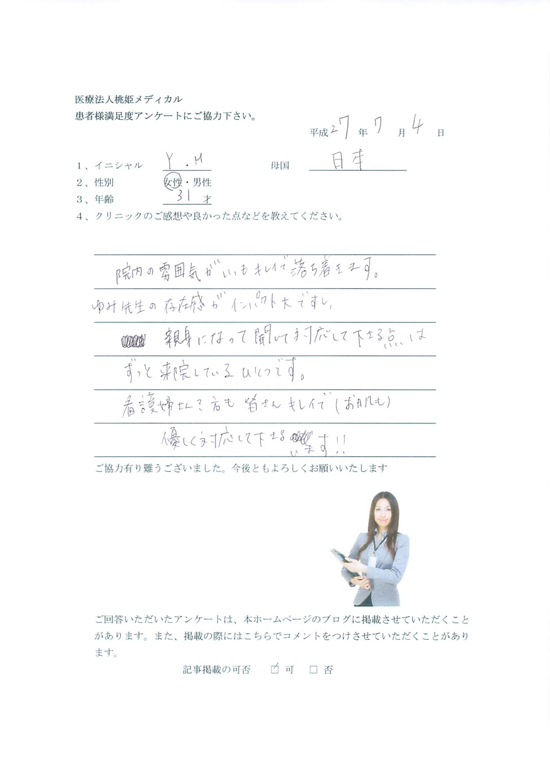 医療法人桃姫メディカル
患者様満足度アンケートにご協力下さい。
平成27年 7月 4日
1、イニシャル Y.M 母国 日本
2、性別 女性・男性
3、年齢 31才
4、クリニックのご感想や良かった点などを教えてください。
院内の雰囲気がいつもキレイで落ち着きます。
ゆみ先生の存在感がインパクト大ですし、
親身になって聞いて対応して下さる点は
ずっと来院しているひとつです。
看護婦さんの方も皆さんキレイで(お肌も)
優しく対応して下さいます!!
ご協力有り難うございました。今後ともよろしくお願いいたします
ご回答いただいたアンケートは、本ホームページのブログに掲載させていただくこと
があります。また、掲載の際にはこちらでコメントをつけさせていただくことがあり
ます。
記事掲載の可否 ☑ 可 □ 否